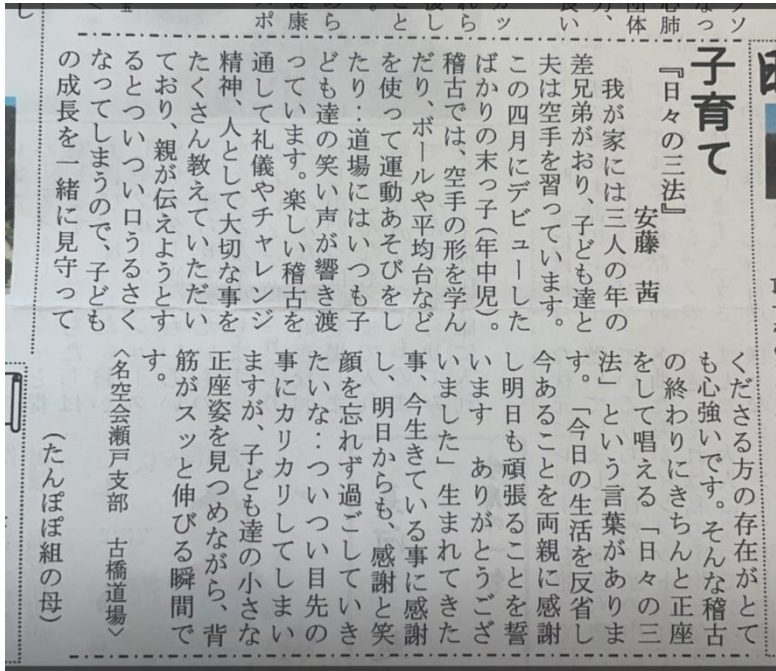 子育て
『日々の三法』
安藤　茜
　我が家には三人の年の
差兄弟がおり、子ども達と
夫は空手を習っています。
この四月にデビューした
ばかりの末っ子（年中児）。
稽古では、空手の形を学ん
だり、ボールや平均台など
を使って運動あそびをし
たり‥道場にはいつも子
ども達の笑い声が響き渡
っています。楽しい稽古を
通して礼儀やチャレンジ
精神、人として大切な事を
たくさん教えていただい
ており、親が伝えようとす
るとついつい口うるさく
なってしまうので、子ども
の成長を一緒に見守って
くださる方の存在がとて
も心強いです。そんな稽古
の終わりにきちんと正座
をして唱える「日々の三
法」という言葉がありま
す。「今日の生活を反省し
今あることを両親に感謝
し明日も頑張ることを誓
います　ありがとうござ
いました」生まれてきた
事、今生きている事に感謝
し、明日からも、感謝と笑
顔を忘れず過ごしていき
たいな‥ついつい目先の
事にカリカリしてしまい
ますが、子ども達の小さな
正座姿を見つめながら、背
筋がスッと伸びる瞬間で
す。
〈名空会瀬戸支部　古橋道場〉
（たんぽぽ組の母）